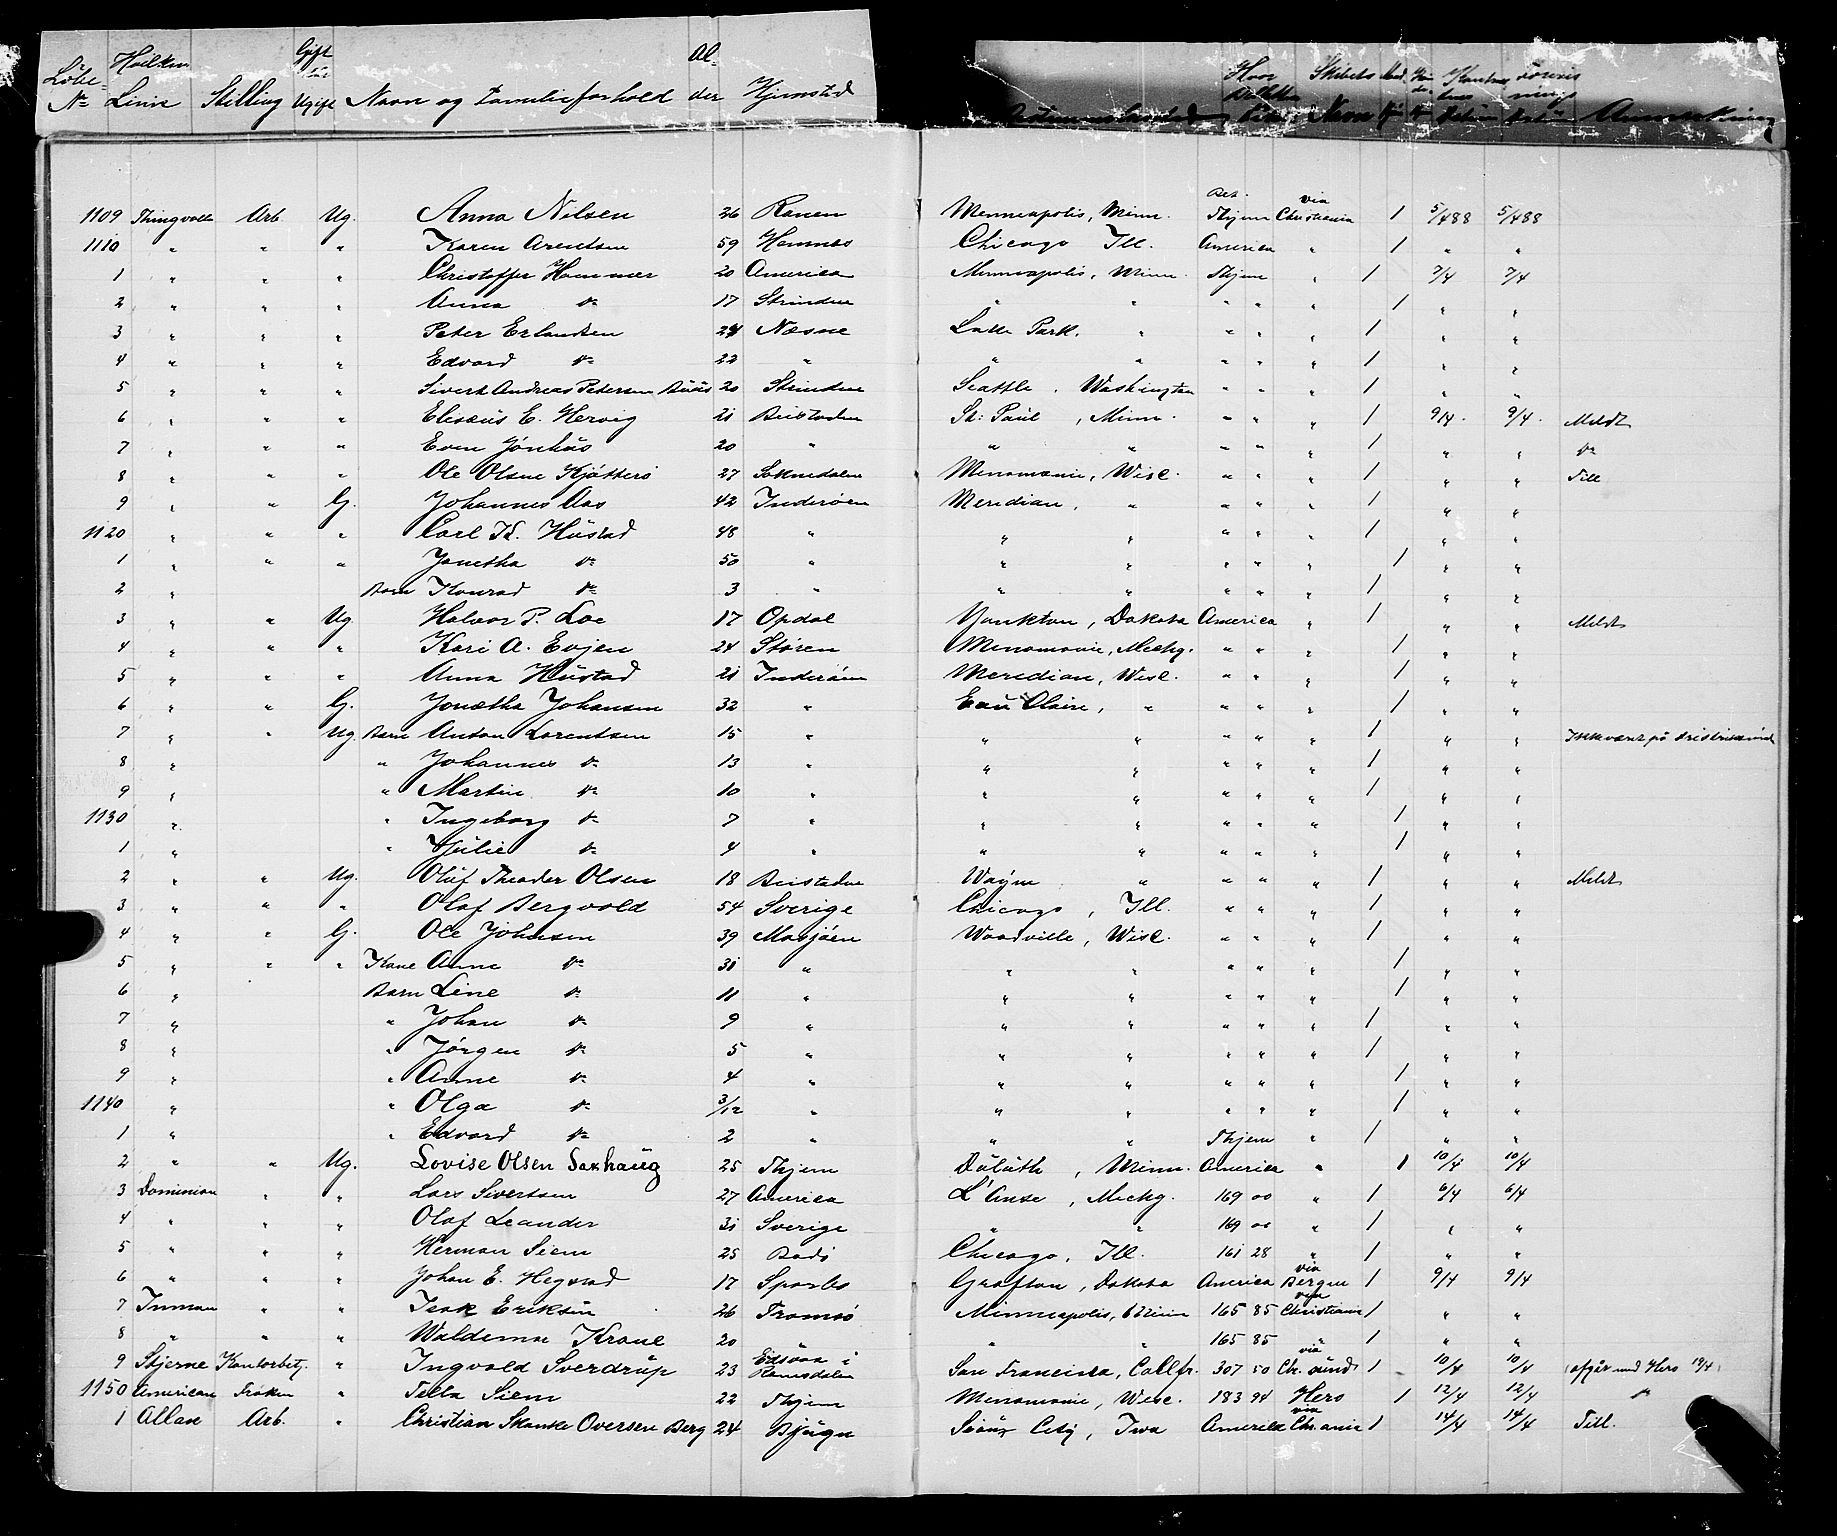 Löbe- Hvilken Gift Al-
№ Linie Stilling Ugift Navn og Familieforhold der Hjemsted Hvor Skibets Navn Anmærkning
1109 Thingvalla Arb. Ug. Anna Nilsen 26 Ranen Menneapolis, Minn. Bet. Thjem via Christiania 1 5/4 88 5/4 88
1110 " " " Karen Arentsen 59 Hemnes Chicago Ill. America " 1 " "
1 " " " Christoffer Hammer 20 America Minneapolis, Minn. Thjem " 1 7/4 7/4
2 " " " Anna do 17 Strinden " " " " " 1 " "
3 " " " Peter Erlandsen 24 Næsne Park. " " " " 1 " "
4 " " " Edvard do 22 " " " " " " 1 " "
5 " " " Sivert Andreas Petersen 20 Strinden Seattle, Washington " " " 1 " "
6 " " " Eliseus E. Hervig 21 Beistaden St: Paul, Minn. " " " 1 9/4. 9/4. Meldt
7 " " " Even Jönhus 20 " " " " " " 1 " " do
8 " " " Ole Olsen 27 Soknedalen Menomænie, Wisc. " " " 1 " " Till
9 " " G. Johannes Aas 42 Inderöen Meridian, " " " " 1 " "
1120 " " " Carl K. Hustad 48 " " " " " " 1 " "
1 " " " Jonetha do 50 " " " " " " 1 " "
2 " Barn Konrad do 3 " " " " " " 1 " "
3 " " Ug. Halvor P. Loe 17 Opdal Yankton, Dakota America " 1 " " Meldt
4 " " " Kari A. Evjen 24 Stören Menomonie, Mechg. " " " 1 " "
5 " " " Anna Hustad 21 Inderöen Meridian, Wisc. " " " 1 " "
6 " " G. Jonetha Johansen 32 " Eau Claire, " " " " 1 " "
7 " " Ug. Barn Anton Lorentsen 15 " " " " " " 1 " "
8 " " Johannes do 13 " " " " " " 1 " "
9 " " Martin do 10 " " " " " " 1 " "
1130 " " Ingeborg do 7 " " " " " " 1 " "
1 " " Julie do 4 " " " " " " 1 " "
2 " " Ug. Oluf Theodor Olsen 18 Beistaden Wayne " " " " 1 " " Meldt
3 " " " Olof Bergvald 54 Sverige Chicago, Ill. " " " 1 " "
4 " " G. Ole Johnsen 39 Mosjöen Woodville, Wisc. " " " 1 " "
5 " " " Kone Anne do 31 " " " " " " 1 " "
6 " Barn Line do 11 " " " " " " 1 " "
7 " " Johan do 9 " " " " " " 1 " "
8 " " Jörgen do 5 " " " " " " 1 " "
9 " " Anne do 4 " " " " " " 1 " "
1140 " " Olga do 3/12 " " " " " " 1 " "
1 " " Edvard do 2 " " " Thjem " 1 " "
2 " " Ug. Lovise Olsen Saxhaug 25 Thjem Duluth, Minn. America " 1 10/4 10/4
3 Dominion " " Lars Sivertsen 27 America L'Anse, Mechg. 169 00 " 1 6/4 6/4
4 " " " Olof Leander 31 Sverige " " 169 00 " 1 " "
5 " " " Herman Siem 25 Bodö Chicago, Ill. 161 28 " 1 " "
6 " " " Johan E. Hegstad 17 Sparbo Grafton, Dakota America via Bergen 1 9/4 9/4
7 Inman " " Isak Eriksen 26 Tromsö Minneapolis, Minn 165 85 via Christiania 1 " "
8 " " " Waldemar Krane 20 " " 165 85 " 1 " "
9 Stjerne Kontorbetj. " Ingvald Sverdrup 23 Edsvaa i Ramsdalen San Francisco, Calfr. 307 50 via Ch. sund 1 10/4 10/4 (afgår med Hero 19/4)
1150 American Fröken " Tella Siem 22 Thjem Menomonie, Wisc. 183 94 Hero 1 12/4 12/4 do
1 Allan Arb. " Christian Skanke Oversen Berg 24 Bjugn Sioux City, Iwa America via Ch.ania 1 14/4 14/4 Till.